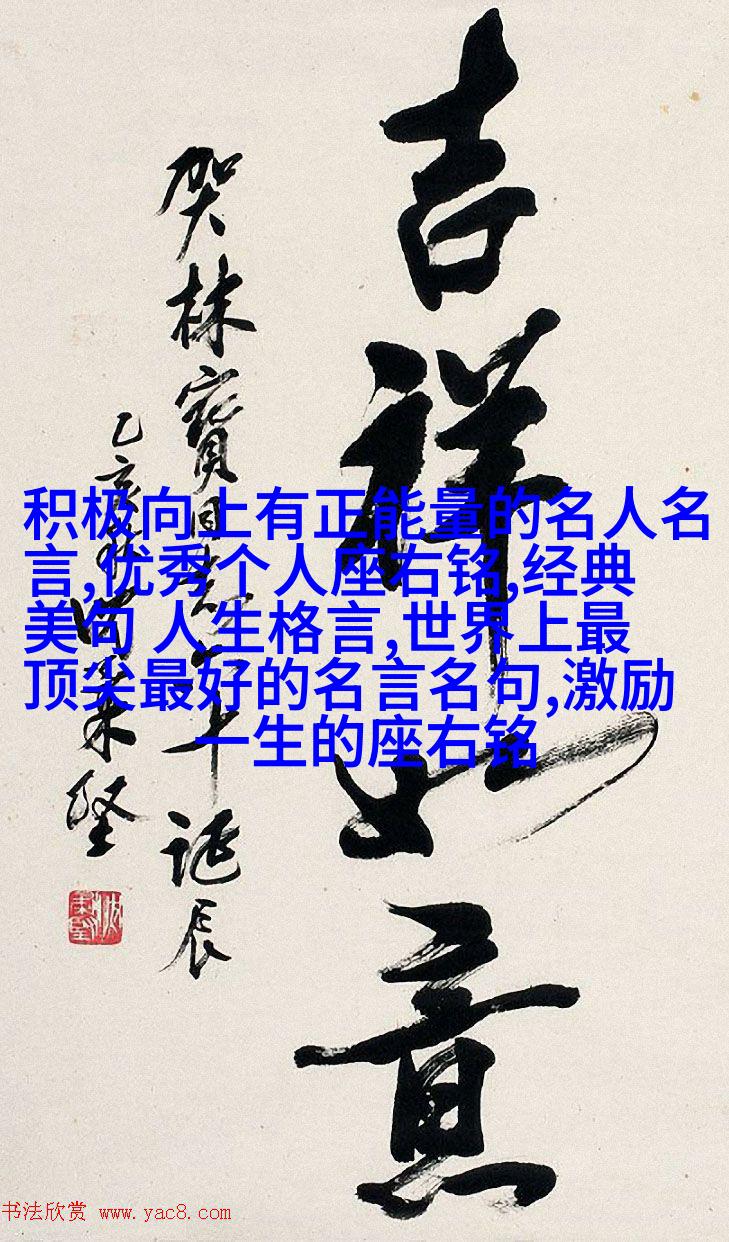 吉祥如意
贺林寶年诞辰
乙亥
积极向上有正能量的名人名
言,优秀个人座右铭,经典
美句 人生格言,世界上最
顶尖最好的名言名句,激励
一生的座右铭
书法欣赏 www.yac8.com